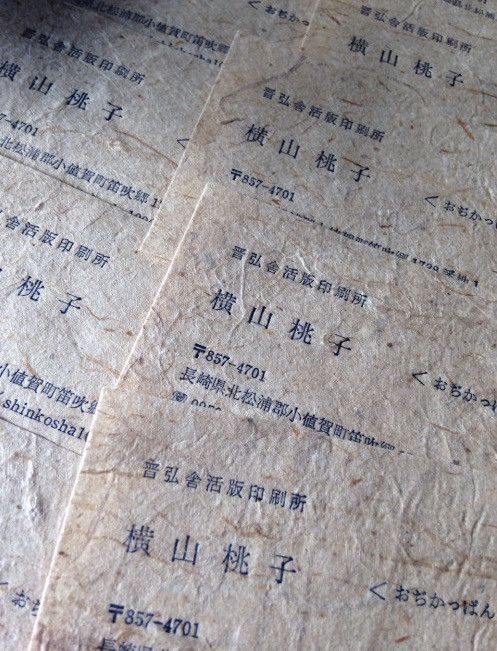 北松浦郡小値賀町笛吹郷
shinkosha
横山桃子
7-4701
北松浦郡小値賀町笛吹郷 1
晋弘舎活版印刷所
横山桃子
横山桃子
晋弘舎活版印刷所
横山桃子
〒857-4701
<おぢかっ
晋弘舎活版印刷所
桃子
小値賀町笛吹郷
shinkosha
晋弘舎活版印刷所
横山桃子
〒857-4701
長崎県北松浦郡小値賀町笛吹
<おぢかっぱ
晋弘舎活版印刷所
横山桃子
〒857-4701
長崎県
<おぢかっぱん